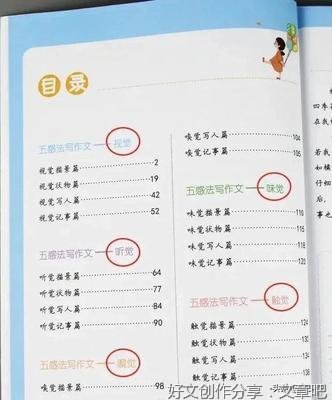 目录
五感法写作文—视觉
视觉描景篇 2
视觉状物篇 19
视觉写人篇 42
视觉记事篇 52
五感法写作文—听觉
听觉描景篇 64
听觉状物篇 77
听觉写人篇 84
听觉记事篇 90
五感法写作文—嗅觉
嗅觉描景篇 98
嗅觉写人篇 104
嗅觉记事篇 105
五感法写作文—味觉
味觉描景篇 110
味觉状物篇 115
味觉写人篇 118
味觉记事篇 120
五感法写作文—触觉
触觉描景篇 124
触觉状物篇 130
触觉写人篇 134
触觉记事篇 138
好文创作分享：文章吧